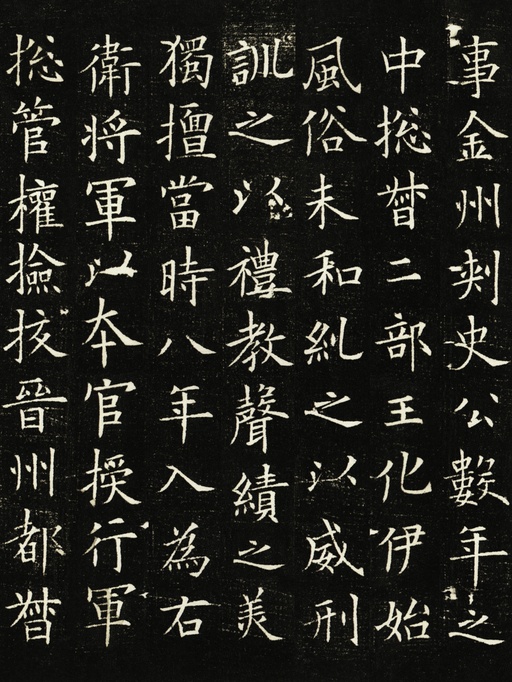 事金州刺史公數年之
中捴督二部王化伊始
風俗未和糺之以威刑
訓之以禮教聲績之美
獨擅當時八年入為右
衛將軍以本官授行軍
捴管權撿挍晉州都督